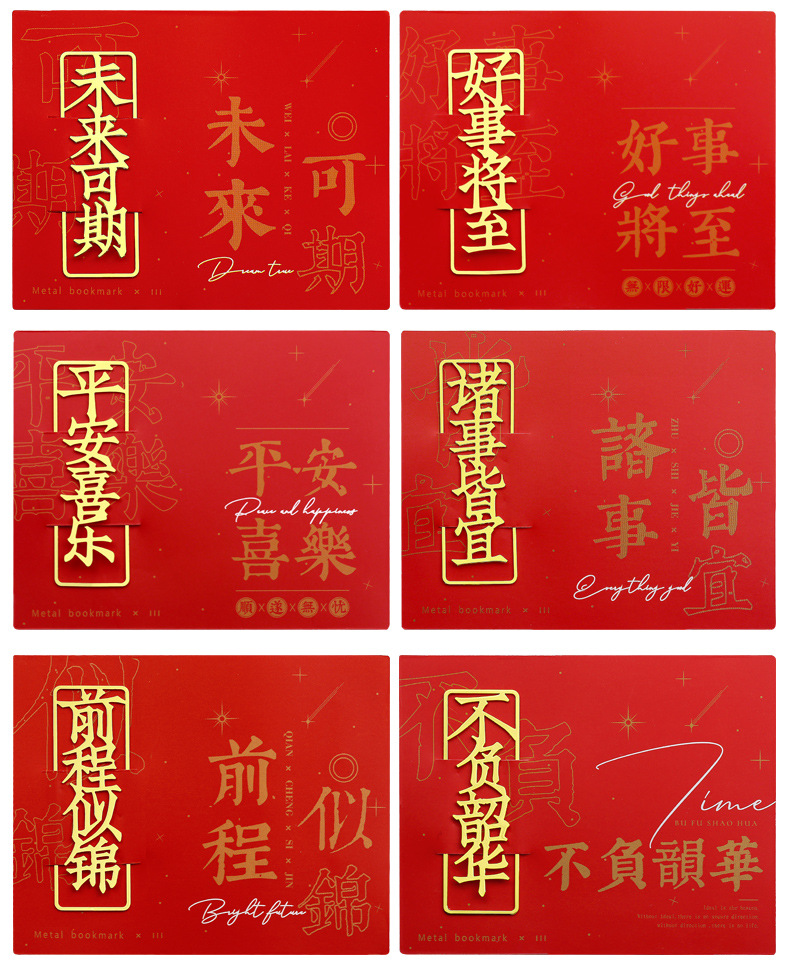 未来可期
未來
可期
WEI × LAI × KE × QI
Dream true
Metal bookmark × III
好事将至
好事
Good things ahead
將至
無×限×好×運
Metal bookmark × III
平安喜乐
平安
Peace and happiness
喜樂
順×遂×無×忧
Metal bookmark × III
堵事皆宜
諸事
皆宜
ZHU × SHI × JIE × YI
Everything good
Metal bookmark × III
前程似锦
前程
似錦
QIAN × CHENG × SI × JIN
Bright future
Metal bookmark × III
不负韶华
Time
BU FU SHAO HUA
不負韻華
Ideal is the beacon.
Without ideal,there is no secure direction.
Without direction ,there is no life.
Metal bookmark × III